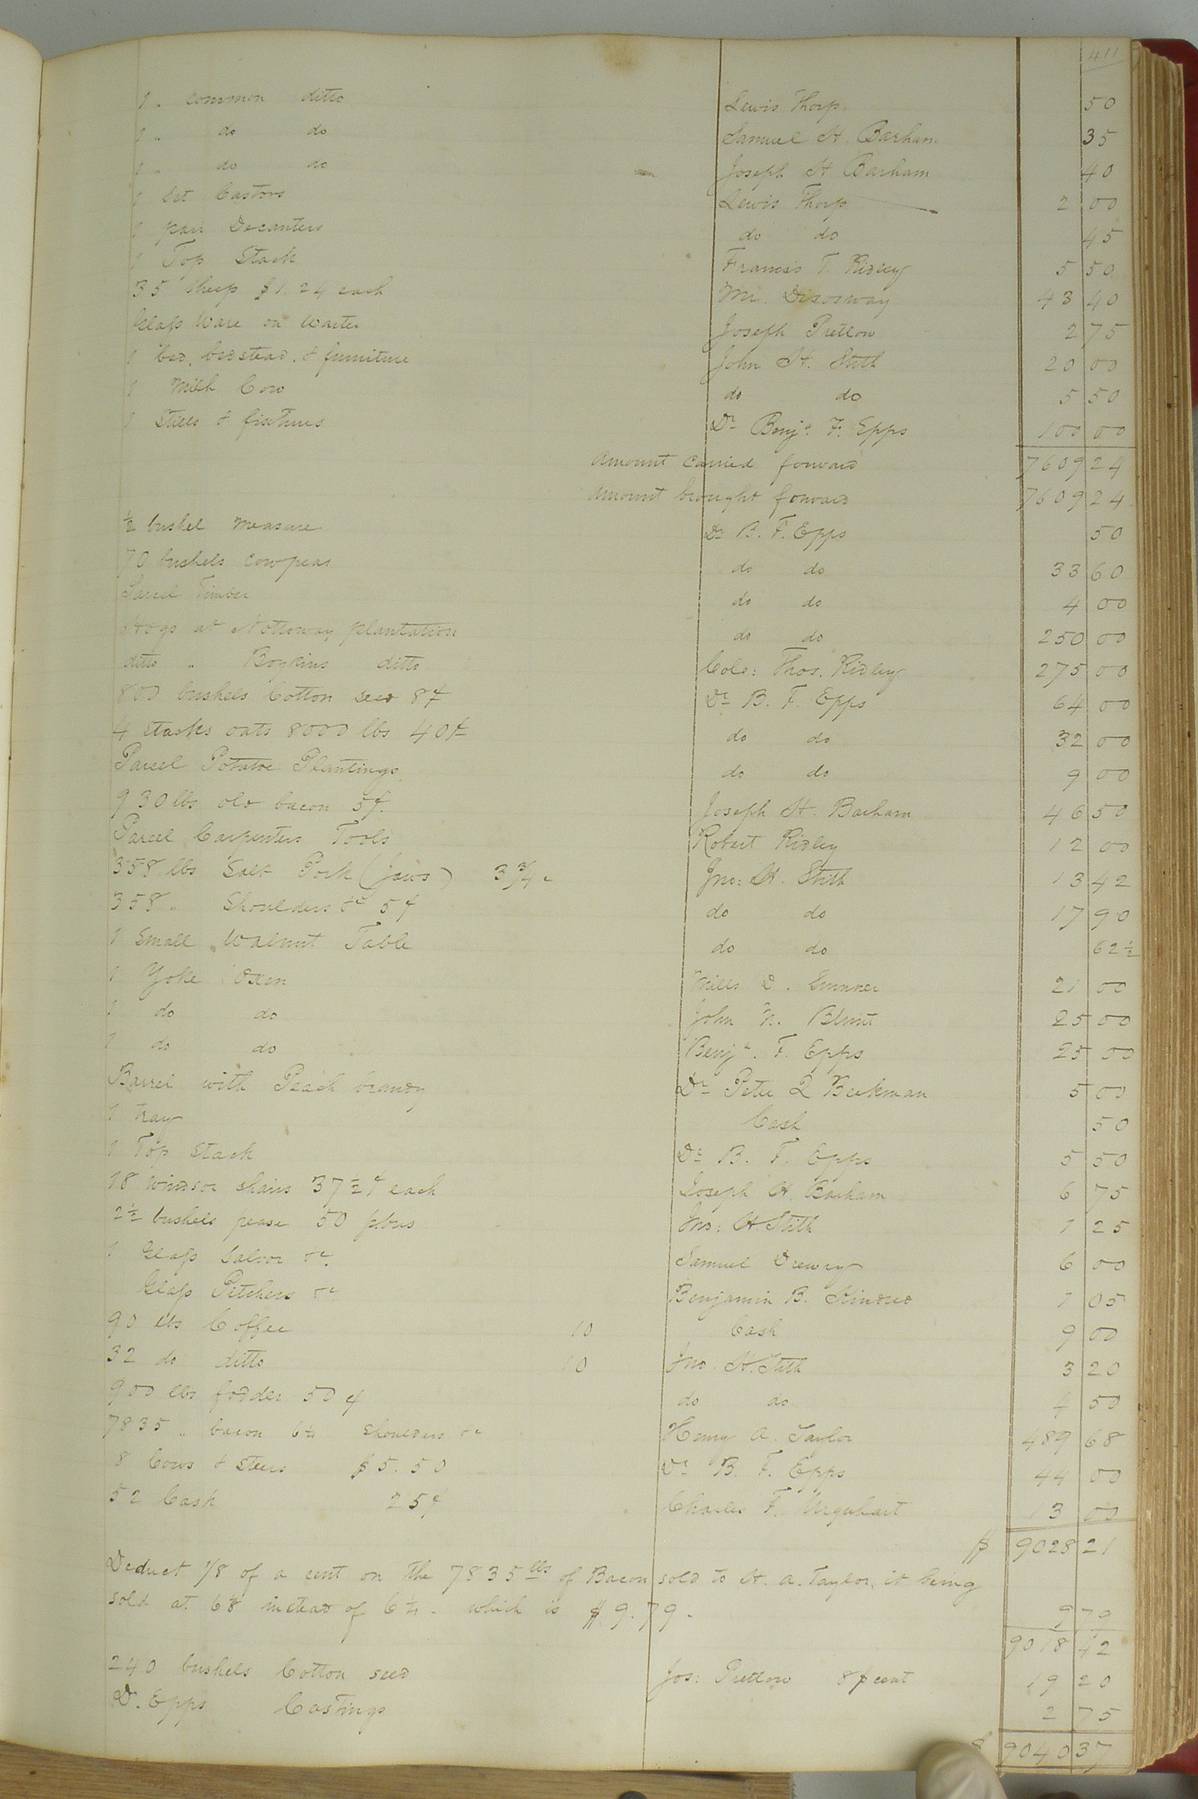 411
1 " common ditto Lewis Thorp 50
1 " do do Samuel H. Barham 35
1 " do do Joseph H Barham 40
1 Set Castors Lewis Thorp 2 00
1 pair Decanters do do 45
1 Top Stack Francis T. Ridley 5 50
35 Sheep $1.24 each Mr. Disosway 43 40
Glass Ware on Waiter Joseph Pretlow 2 75
1 bed, bedstead, & furniture John H. Stith 20 00
1 Milk Cow do do 5 50
1 Stills & fixtures Dr Benja F. Epps 100 00
Amount carried forward 7609 24
Amount brought forward 7609 24
½ bushel measure Dr B. F. Epps 50
70 bushels cow peas do do 33 60
Parcel Timber do do 4 00
Hogs at Nottoway plantation do do 250 00
ditto " Boykins ditto Colo: Thos. Ridley 275 00
800 bushels Cotton seed 8¢ Dr B. F. Epps 64 00
4 stacks oats 8000 lbs 40¢ do do 32 00
Parcel Potatoe Plantings do do 9 00
930 lbs old bacon 5¢ Joseph H. Barham 46 50
Parcel Carpenters Tools Robert Ridley 12 00
358 lbs Salt Pork (Jaws) 3¾ " Jno: H. Stith 13 42
358 " Shoulders &c 5¢ do do 17 90
1 Small Walnut Table do do 62½
1 Yoke Oxen Mills D. Sumner 21 00
1 do do John N. Blunt 25 00
1 do do Benja. F. Epps 25 00
Barrel with Peach brandy Dr Peter Q Beekman 5 00
1 tray Cash 50
1 Top Stack Dr B. F. Epps 5 50
18 windsor chairs 37½¢ each Joseph H. Barham 6 75
2½ bushels pease 50 Jno: H Stith 1 25
1 Glass Salvor &c. Samuel Drewry 6 00
Glass Pitchers &c Benjamin B. Kindred 1 05
90 lbs Coffee 10 Cash 9 00
32 do ditto 10 Jno H. Stith 3 20
900 lbs fodder 50¢ do do 4 50
7835 " bacon 6¼ Shoulders &c Henry A. Taylor 489 68
8 Cows & Steers $5.50 Dr B. F. Epps 44 00
52 Cask 25¢ Charles F. Urquhart 13 00
$ 9028 21
Deduct 1/8 of a cent on the 7835 lbs of Bacon sold to H. A. Taylor, it being
sold at 6⅛ instead of 6¼. which is $9.79. 9 79
9018 42
240 bushels Cotton seed Jos: Pretlow 8 cent 19 20
D. Epps Castings 2 75
$ 9040 37